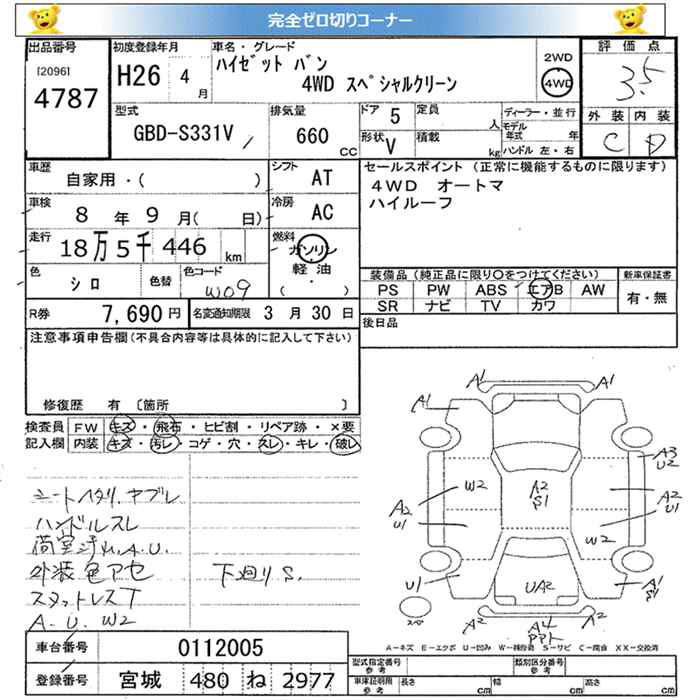 完全ゼロ切りコーナー
出品番号
[2096]
4787
初度登録年月
H26 4月
車名・グレード
ハイゼット バン
4WD スペシャルクリーン
2WD
4WD
評価点
3.5
外装 内装
C D
型式
GBD-S331V
排気量
660 CC
ドア 5
形状 V
定員 人
積載 kg
ディーラー・並行
モデル年式 年
ハンドル 左・右
車歴
自家用・( )
シフト
AT
車検
8年 9月( 日)
冷房
AC
走行
18万5千446 km
燃料
ガソリン
軽油
( ・ )
色
シロ
色替
色コード
W09
R券
7,690円
名変通知期限
3月30日
セールスポイント (正常に機能するものに限ります)
4WD オートマ
ハイルーフ
装備品(純正品に限り○をつけてください)
PS PW ABS エアB AW
SR ナビ TV カワ
新車保証書
有・無
後日品
注意事項申告欄(不具合内容等は具体的に記入して下さい)
修復歴 有 〔箇所 〕
検査員記入欄
FW キズ・飛石・ヒビ割・リペア跡・×要
内装 キズ・汚レ・コゲ・穴・スレ・キレ・破レ
シートヘタリ.ヤブレ
ハンドルスレ
A.U.
外装色アセ
下廻りS.
スタットレスT
A.U.W2
A1 A1
A3
U2
A2
U1
W2
A2
S1
A2
U1
W2
U1
UA2
A1
S1
スペ
A2
A4
A2
A-キズ E-エクボ U-凹み W-補修跡 S-サビ C-腐食 XX-交換済
車台番号
0112005
登録番号
宮城 480 ね 2977
型式指定番号
参考
類別区分番号
参考
車庫証明用
参考
長さ cm
幅 cm
高さ cm